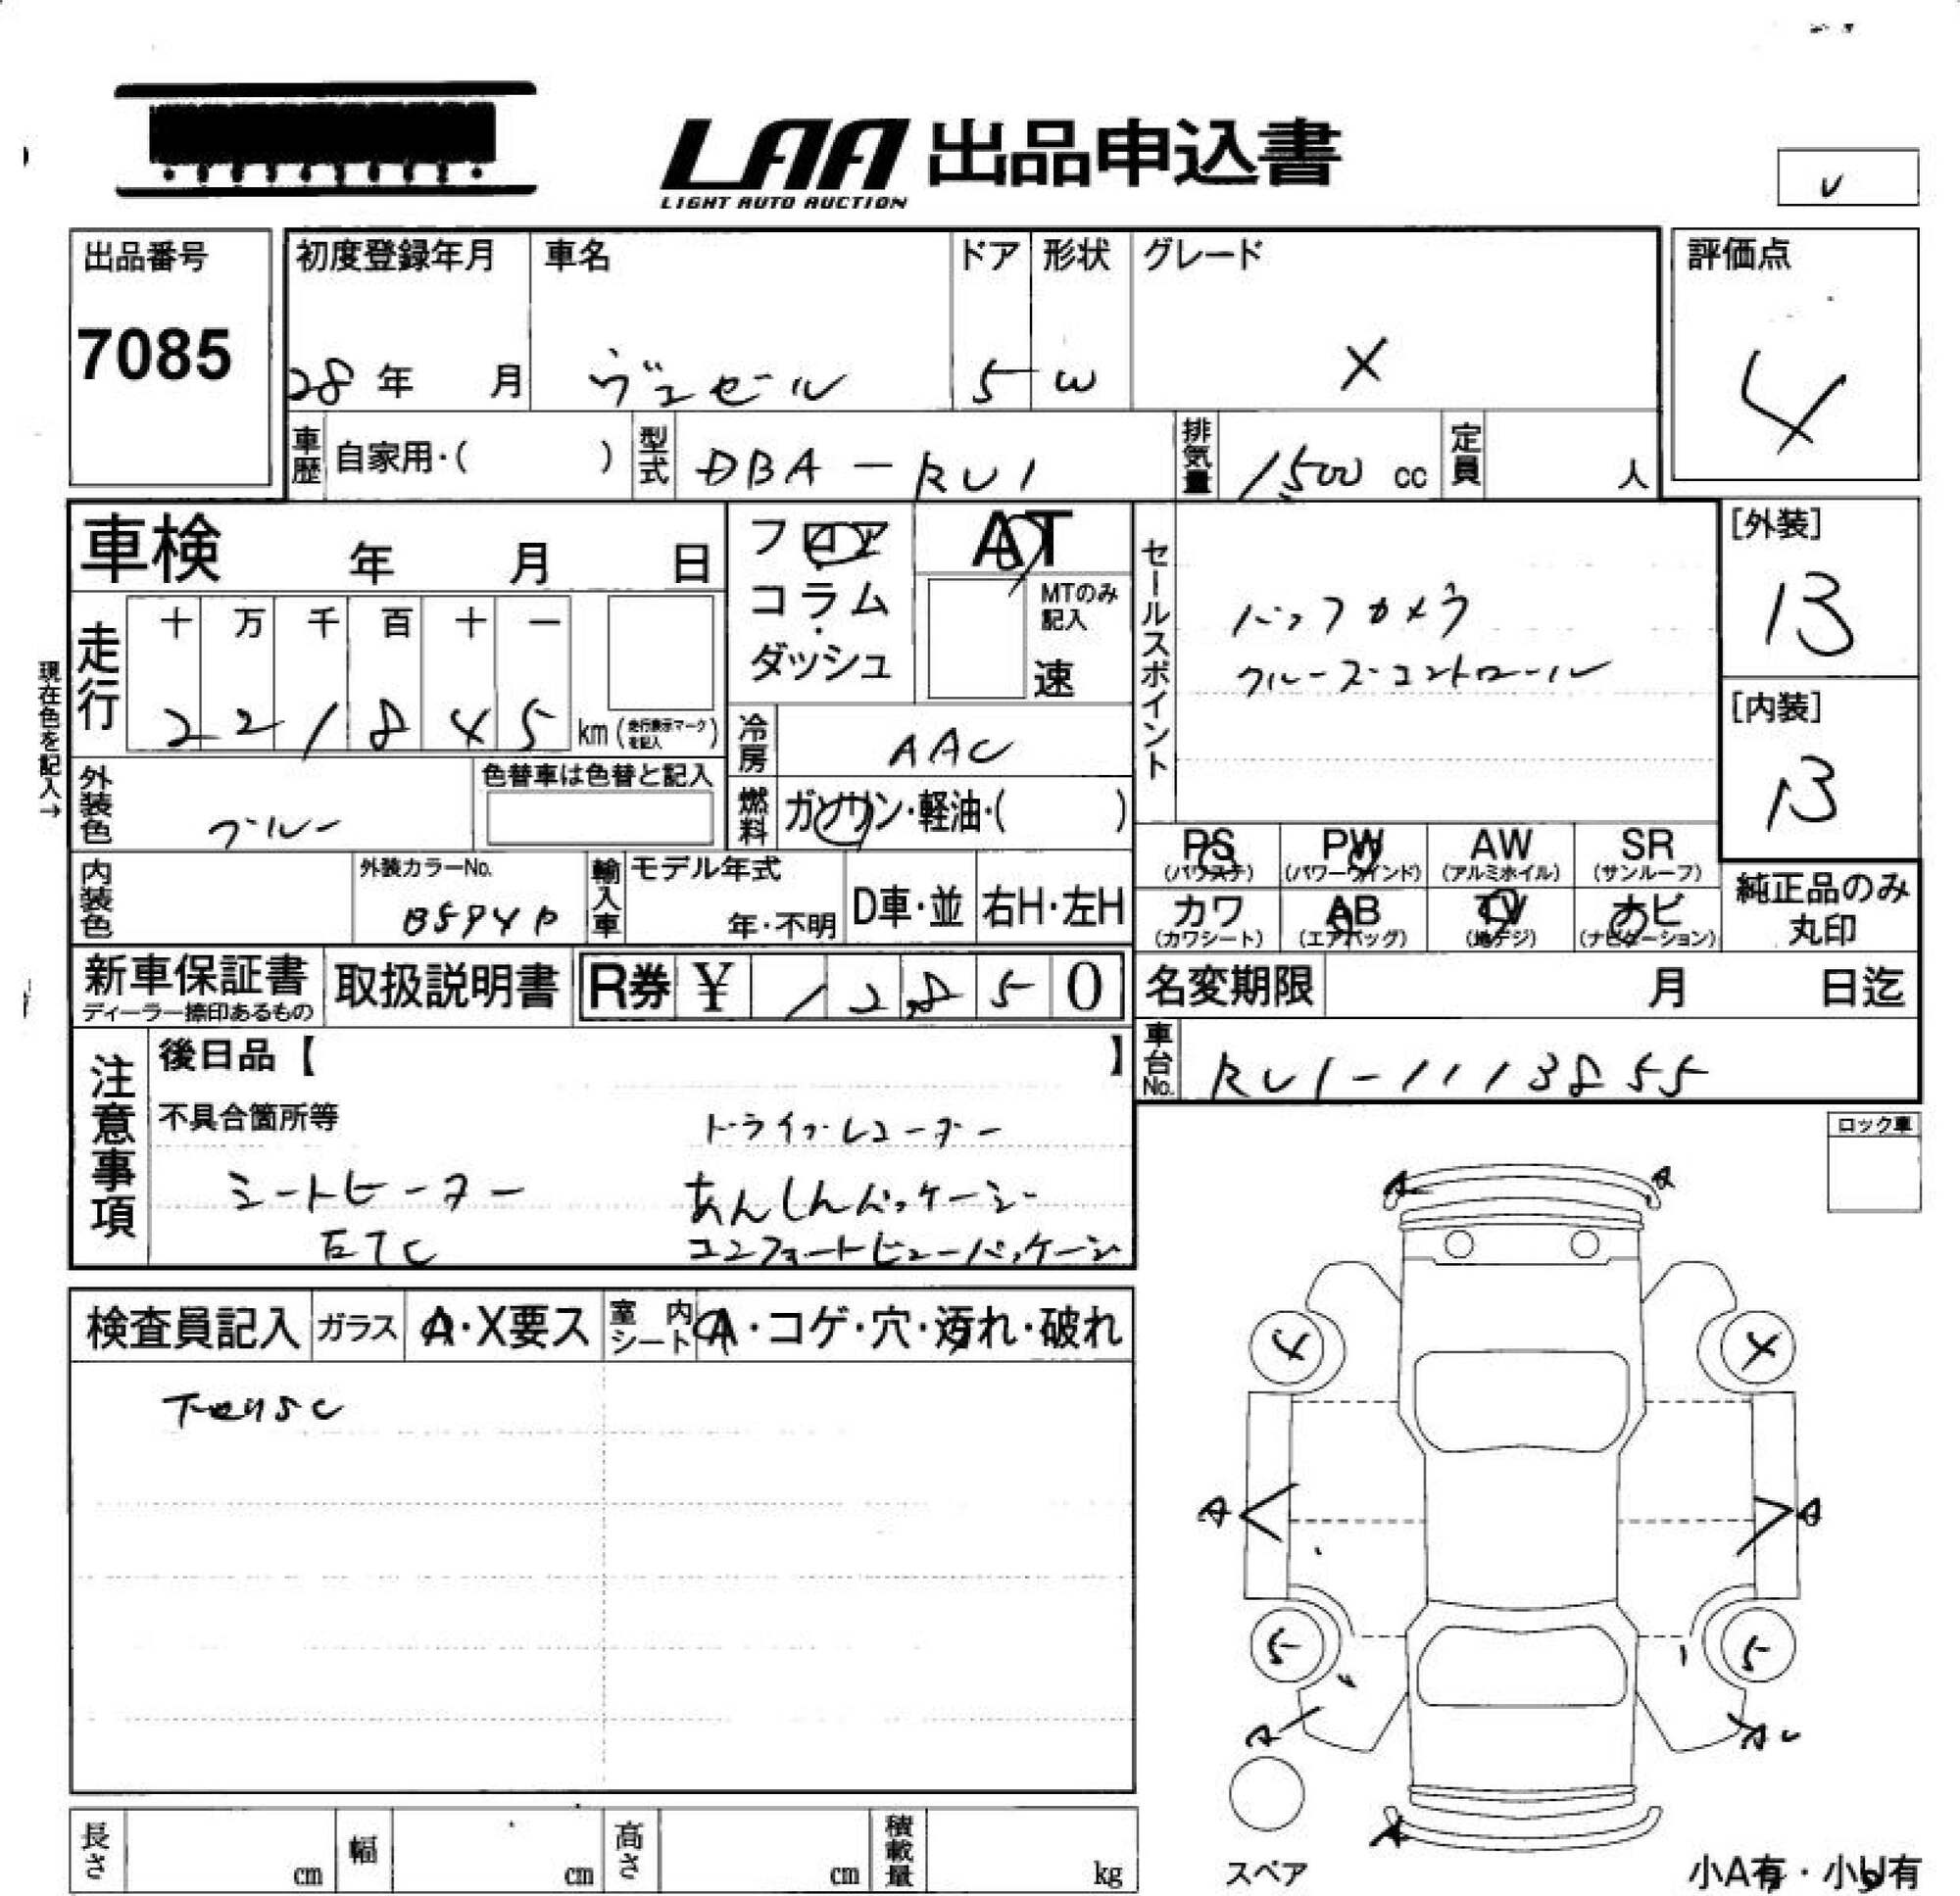 LAA 出品申込書
LIGHT AUTO AUCTION
出品番号
7085
初度登録年月
28年 月
車名
ヴェゼル
ドア
5
形状
W
グレード
X
評価点
4
車歴 自家用・( )
型式 DBA-RU1
排気量 1500 cc
定員 人
車検 年 月 日
フロア
コラム
ダッシュ
AT
MTのみ記入
速
セールスポイント
バックカメラ
クルーズコントロール
[外装]
B
[内装]
B
現在色を記入→
走行
十 万 千 百 十 一
2 2 1 8 4 5 km (走行表示マークを記入)
冷房 AAC
外装色 ブルー
色替車は色替と記入
燃料 ガソリン・軽油・( )
PS (パワステ)
PW (パワーウインド)
AW (アルミホイル)
SR (サンルーフ)
カワ (カワシート)
AB (エアバッグ)
TV (地デジ)
ナビ (ナビゲーション)
純正品のみ丸印
内装色
外装カラーNo.
B594P
輸入車
モデル年式
年・不明
D車・並
右H・左H
新車保証書
ディーラー捺印あるもの
取扱説明書
R券 ¥ 12850
名変期限 月 日迄
車台No. RU1-1113855
注意事項
後日品【 】
不具合箇所等
ドライブレコーダー
シートヒーター
あんしんパッケージ
ETC
コンフォートビューパッケージ
ロック車
検査員記入
ガラス A・X要ス
室内シート A・コゲ・穴・汚れ・破れ
下回りSC
A A
4 4
A A
5 5
A AU
スペア
小A有・小U有
長さ cm
幅 cm
高さ cm
積載量 kg